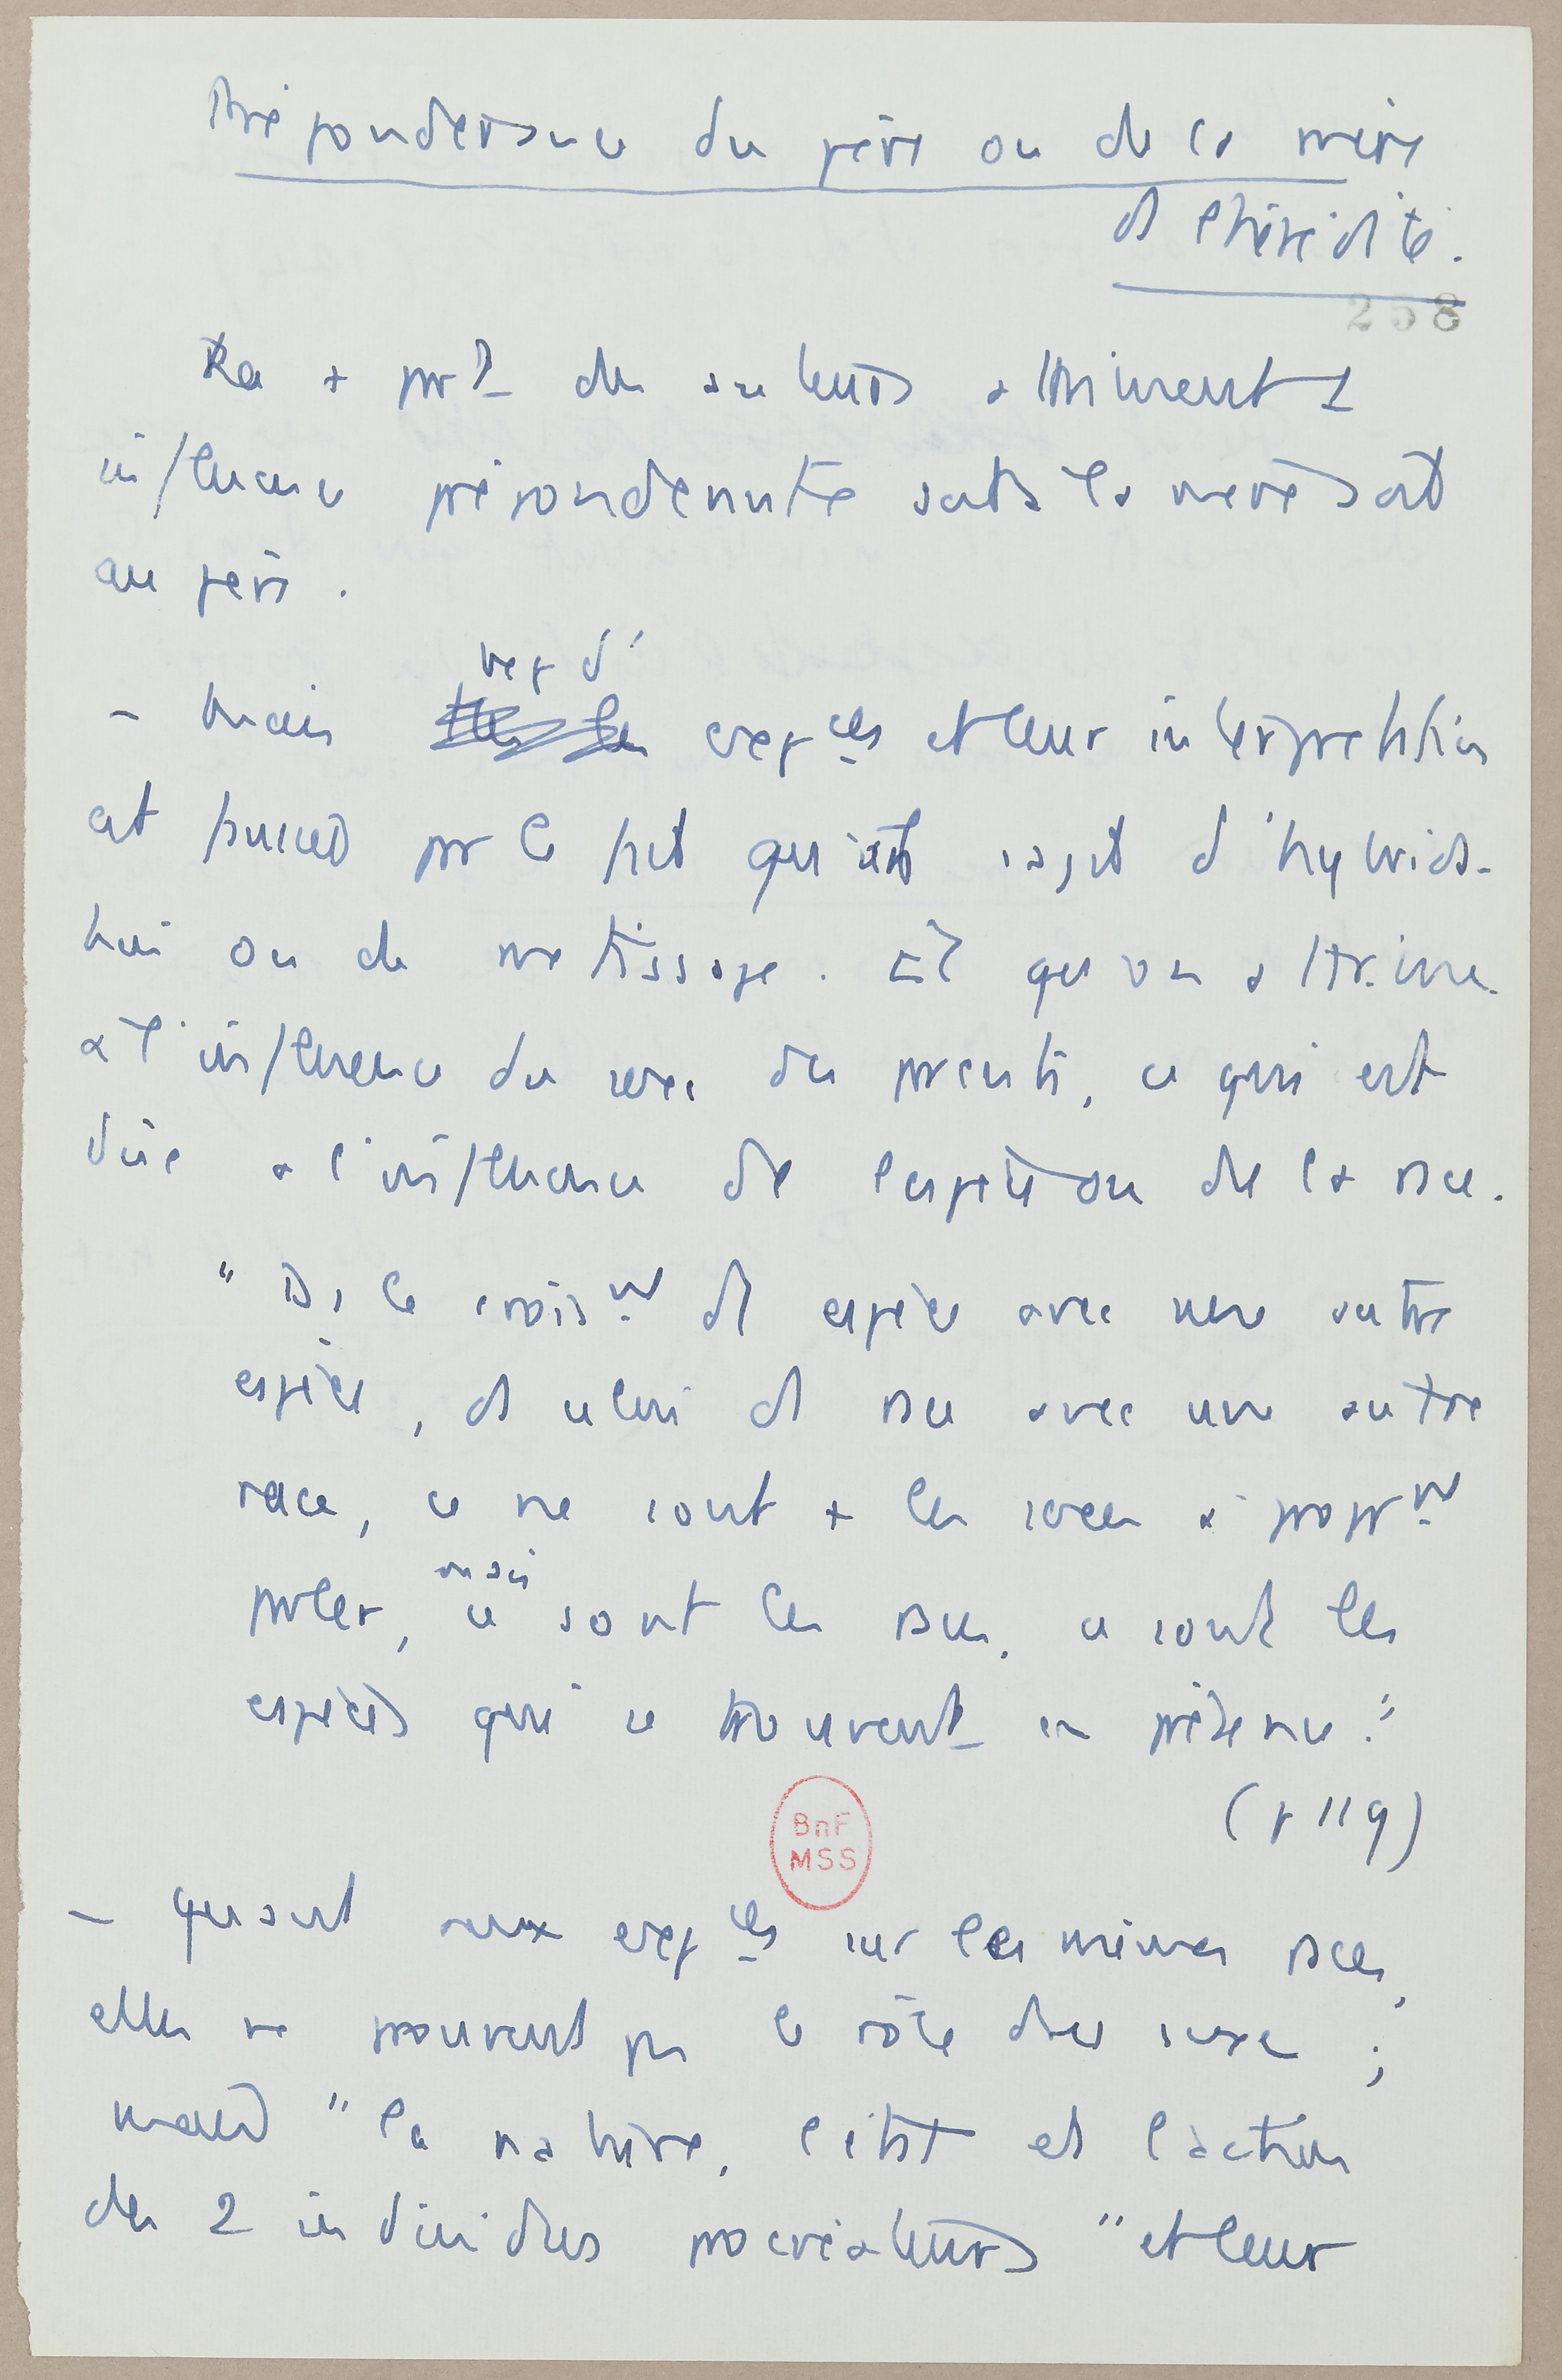 Prépondérance du père ou de la mère
ds l'hérédité.
258
La + prt des auteurs attribuent 1
influence prépondérante soit à la mère soit
au père.
bcp d'
- Mais expces et leur interprétation
est faussée par le fait qu'il s'agit d'hybrida-
tion ou de métissage. Et qu'on attribue
à l'influence du sexe des parents, ce qui est
dûe à l'influence de l'espèce ou de la race.
" Ds le croismt d1 espèce avec une autre
espèce, d1 celui d1 race avec une autre
race, ce ne sont + les sexes à proprmt
mais
parler, ce sont les races, ce sont les
espèces qui se trouvent en présence."
(p 119)
BnF
MSS
- Quant aux expces sur les mêmes races,
elles ne prouvent pas le rôle des sexes ;
mais " la nature, l'état et l'action
des 2 individus procréateurs " et leur